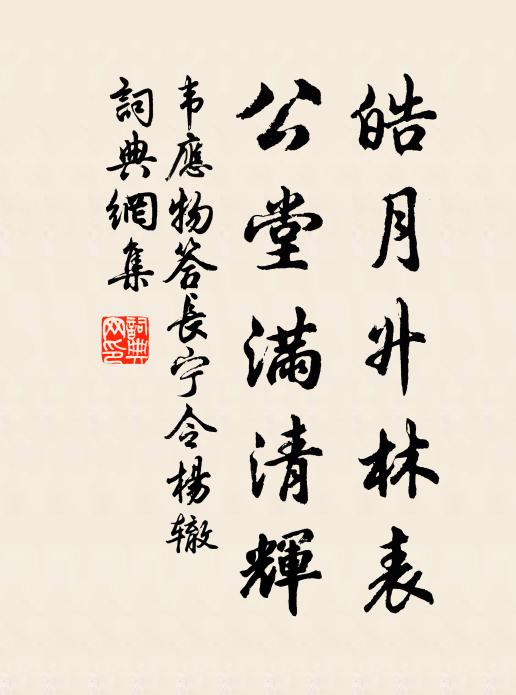 皓月升林表
公堂滿清輝
韦應物答長宁令楊辙
詞典網集
詞典网印